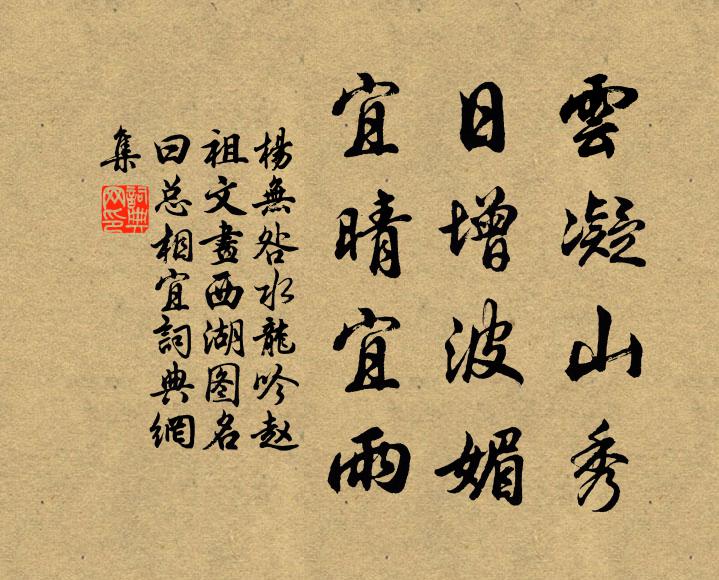 雲凝山秀
日增波媚
宜晴宜雨
楊無咎水龍吟赵
祖文畫西湖图名
曰总相宜詞典網
集
詞典网印